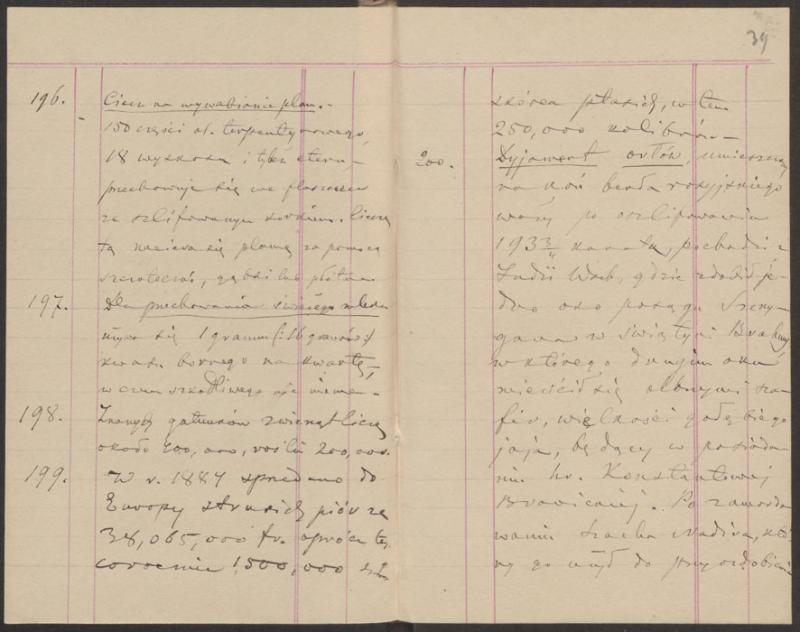 39
196. Ciecz na wywabianie plam.-
150 części ol. terpentynowego,
18 wyskoku i tyleż eteru,
przechowuje się we flaszeczce
ze szlifowanym korkiem. Cieczą
tą naciera się plamę za pomocą
szczoteczki, gąbki lub płótna
197. Dla przechowania świeżego mleka
używa się 1 gramm (:16 granów:)
kwasu bornego na kwartę,
w czem szkodliwego nic niema.-
198. Znanych gatunków zwierząt liczą
około 200,000, roślin 200,000.
199. W r. 1884 sprzedano do
Europy strusich piór za
38,065,000 fr. oprócz tego
corocznie 1,500,000
skórek ptasich, w tem
250,000 kolibrów.-
200. Dyjament orłów, umieszczony
na koń berła rosyjskiego
waży po oszlifowaniu
193 3/4 karata, pochodzi z
Indii Wsch, gdzie zdobił je-
dno oko posągu Szery-
gana w świątyni Bramy,
w którego drugim oku
mieścił się olbrzymi sza-
fir, wielkości gołębiego
jaja, będący w posiada-
niu hr. Konstantowej
Branickiej. Po zamordo-
waniu szacha Nadira, któ-
ry go użył do przyozdobienia